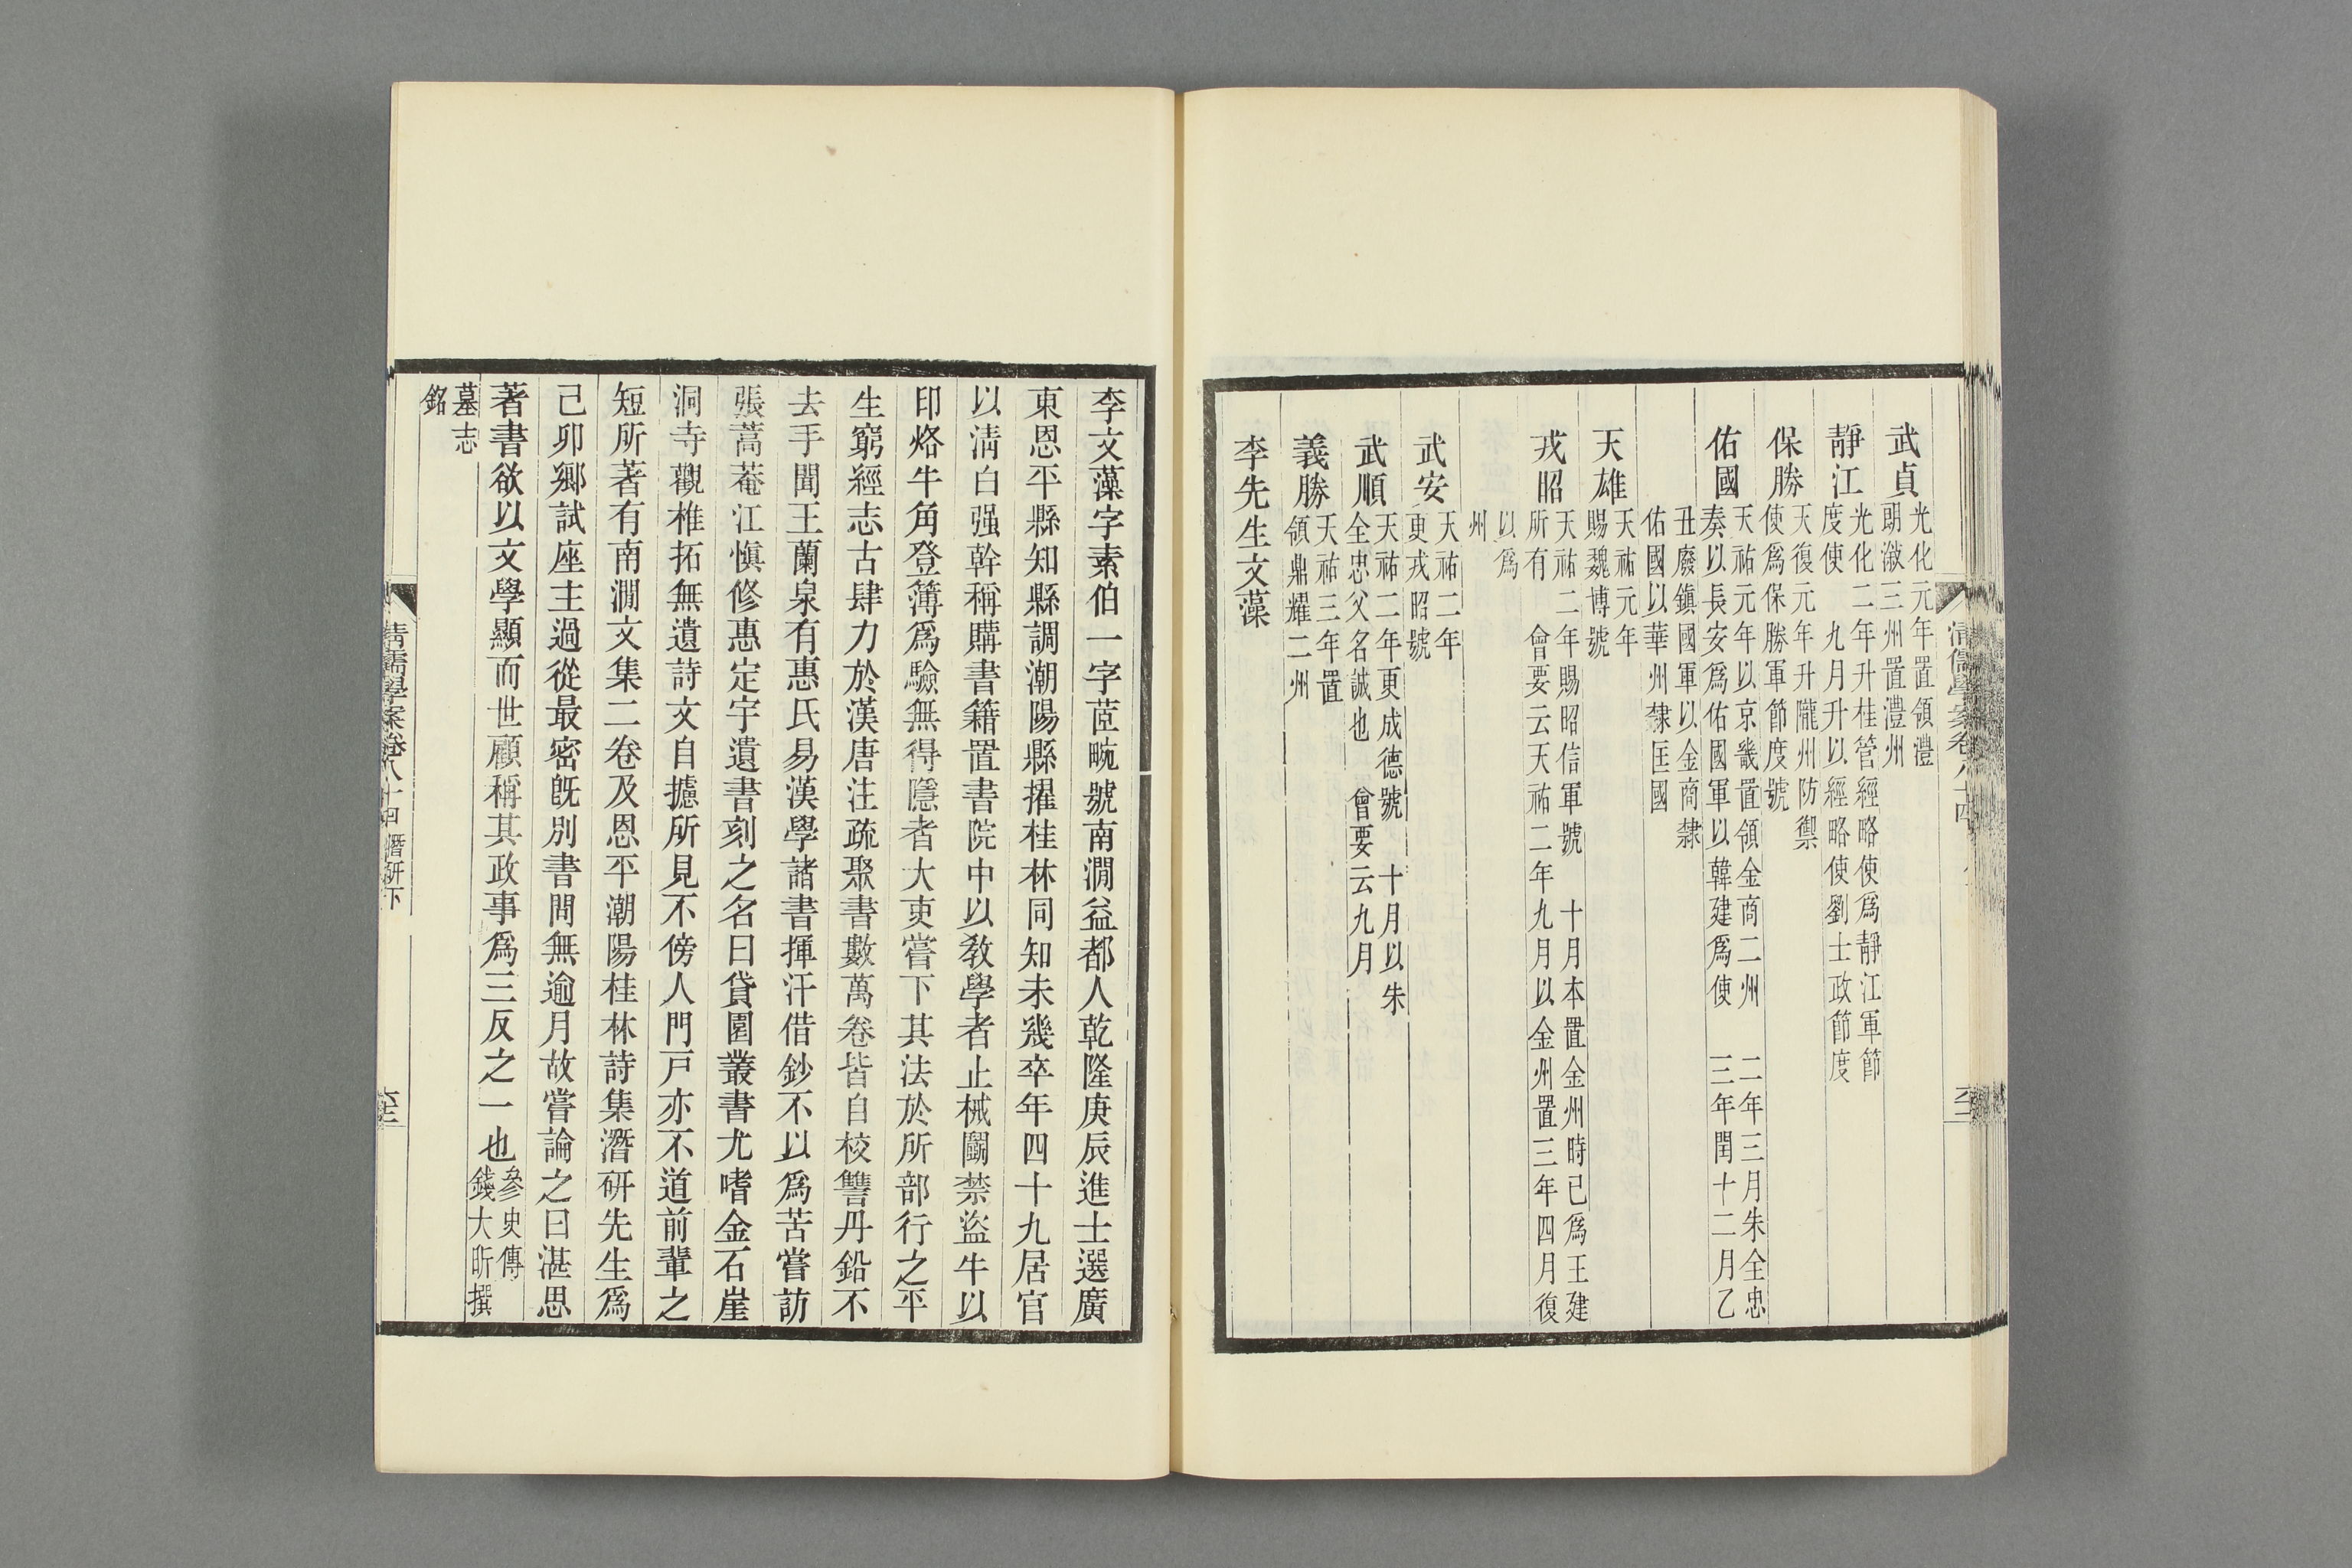 武貞 光化元年置領澧
朗漵三州置澧州
靜江 光化二年升桂管經略使爲靜江軍節
度使 九月升以經略使劉士政節度
保勝 天復元年升隴州防禦
使爲保勝軍節度號
佑國 天祐元年以京畿置領金商二州 二年三月朱全忠
奏以長安爲佑國軍以韓建爲使 三年閏十二月乙
丑廢鎭國軍以金商隸
佑國以華州隸匡國
天雄 天祐元年
賜魏博號
戎昭 天祐二年賜昭信軍號 十月本置金州時已爲王建
所有 會要云天祐二年九月以金州置三年四月復
以爲
州
武安 天祐二年
更戎昭號
武順 天祐二年更成德號 十月以朱
全忠父名誠也 會要云九月
義勝 天祐三年置
領鼎耀二州
李先生文藻
李文藻字素伯一字茝畹號南澗益都人乾隆庚辰進士選廣
東恩平縣知縣調潮陽縣擢桂林同知未幾卒年四十九居官
以清白强幹稱購書籍置書院中以教學者止械鬭禁盜牛以
印烙牛角登簿爲驗無得隱者大吏嘗下其法於所部行之平
生窮經志古肆力於漢唐注疏聚書數萬卷皆自校讐丹鉛不
去手聞王蘭泉有惠氏易漢學諸書揮汗借鈔不以爲苦嘗訪
張蒿菴江愼修惠定宇遺書刻之名曰貸園叢書尤嗜金石崖
洞寺觀椎拓無遺詩文自攄所見不傍人門戸亦不道前輩之
短所著有南澗文集二卷及恩平潮陽桂林詩集潛研先生爲
己卯鄉試座主過從最密旣別書問無逾月故嘗論之曰湛思
著書欲以文學顯而世顧稱其政事爲三反之一也 參史傳
錢大昕撰
墓志
銘
清儒學案卷八十四 潛研下